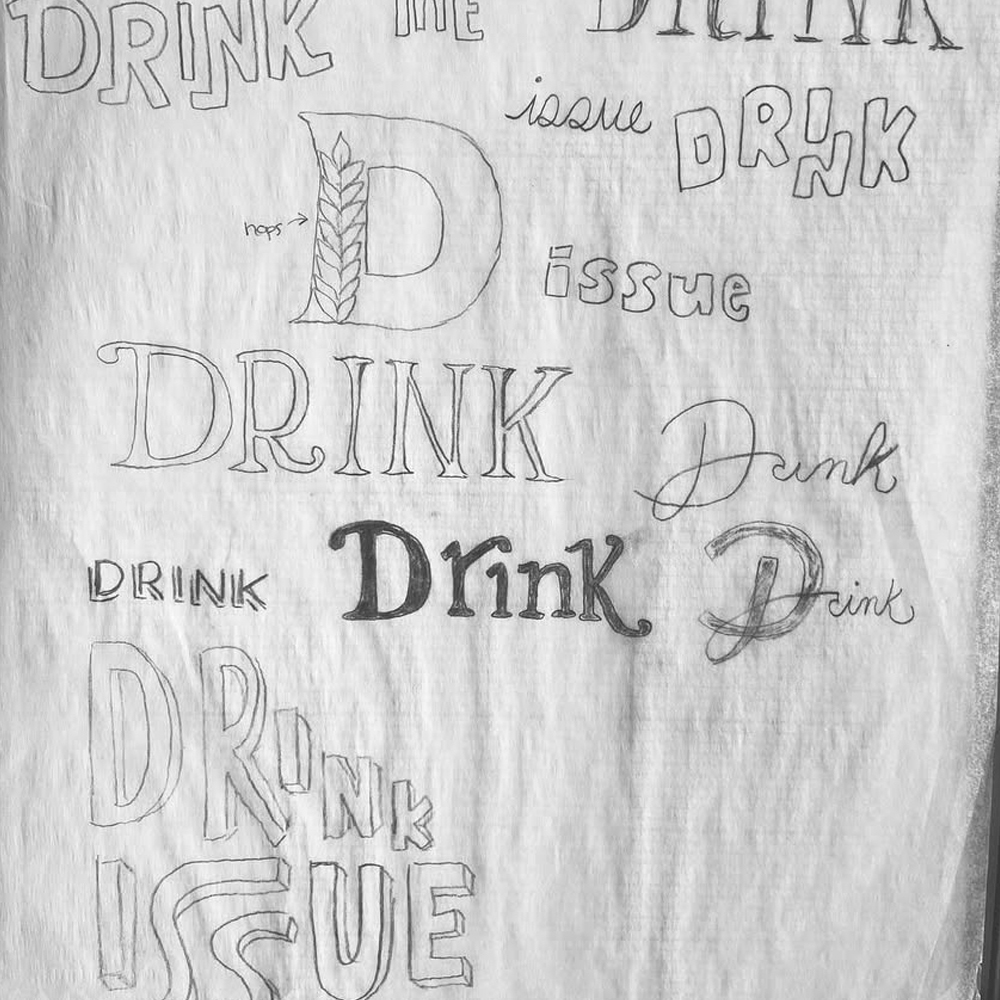 DRINK THE DRINK
issue DRINK
D
hops →
issue
DRINK
Drink
DRINK Drink Drink
DRINK
ISSUE